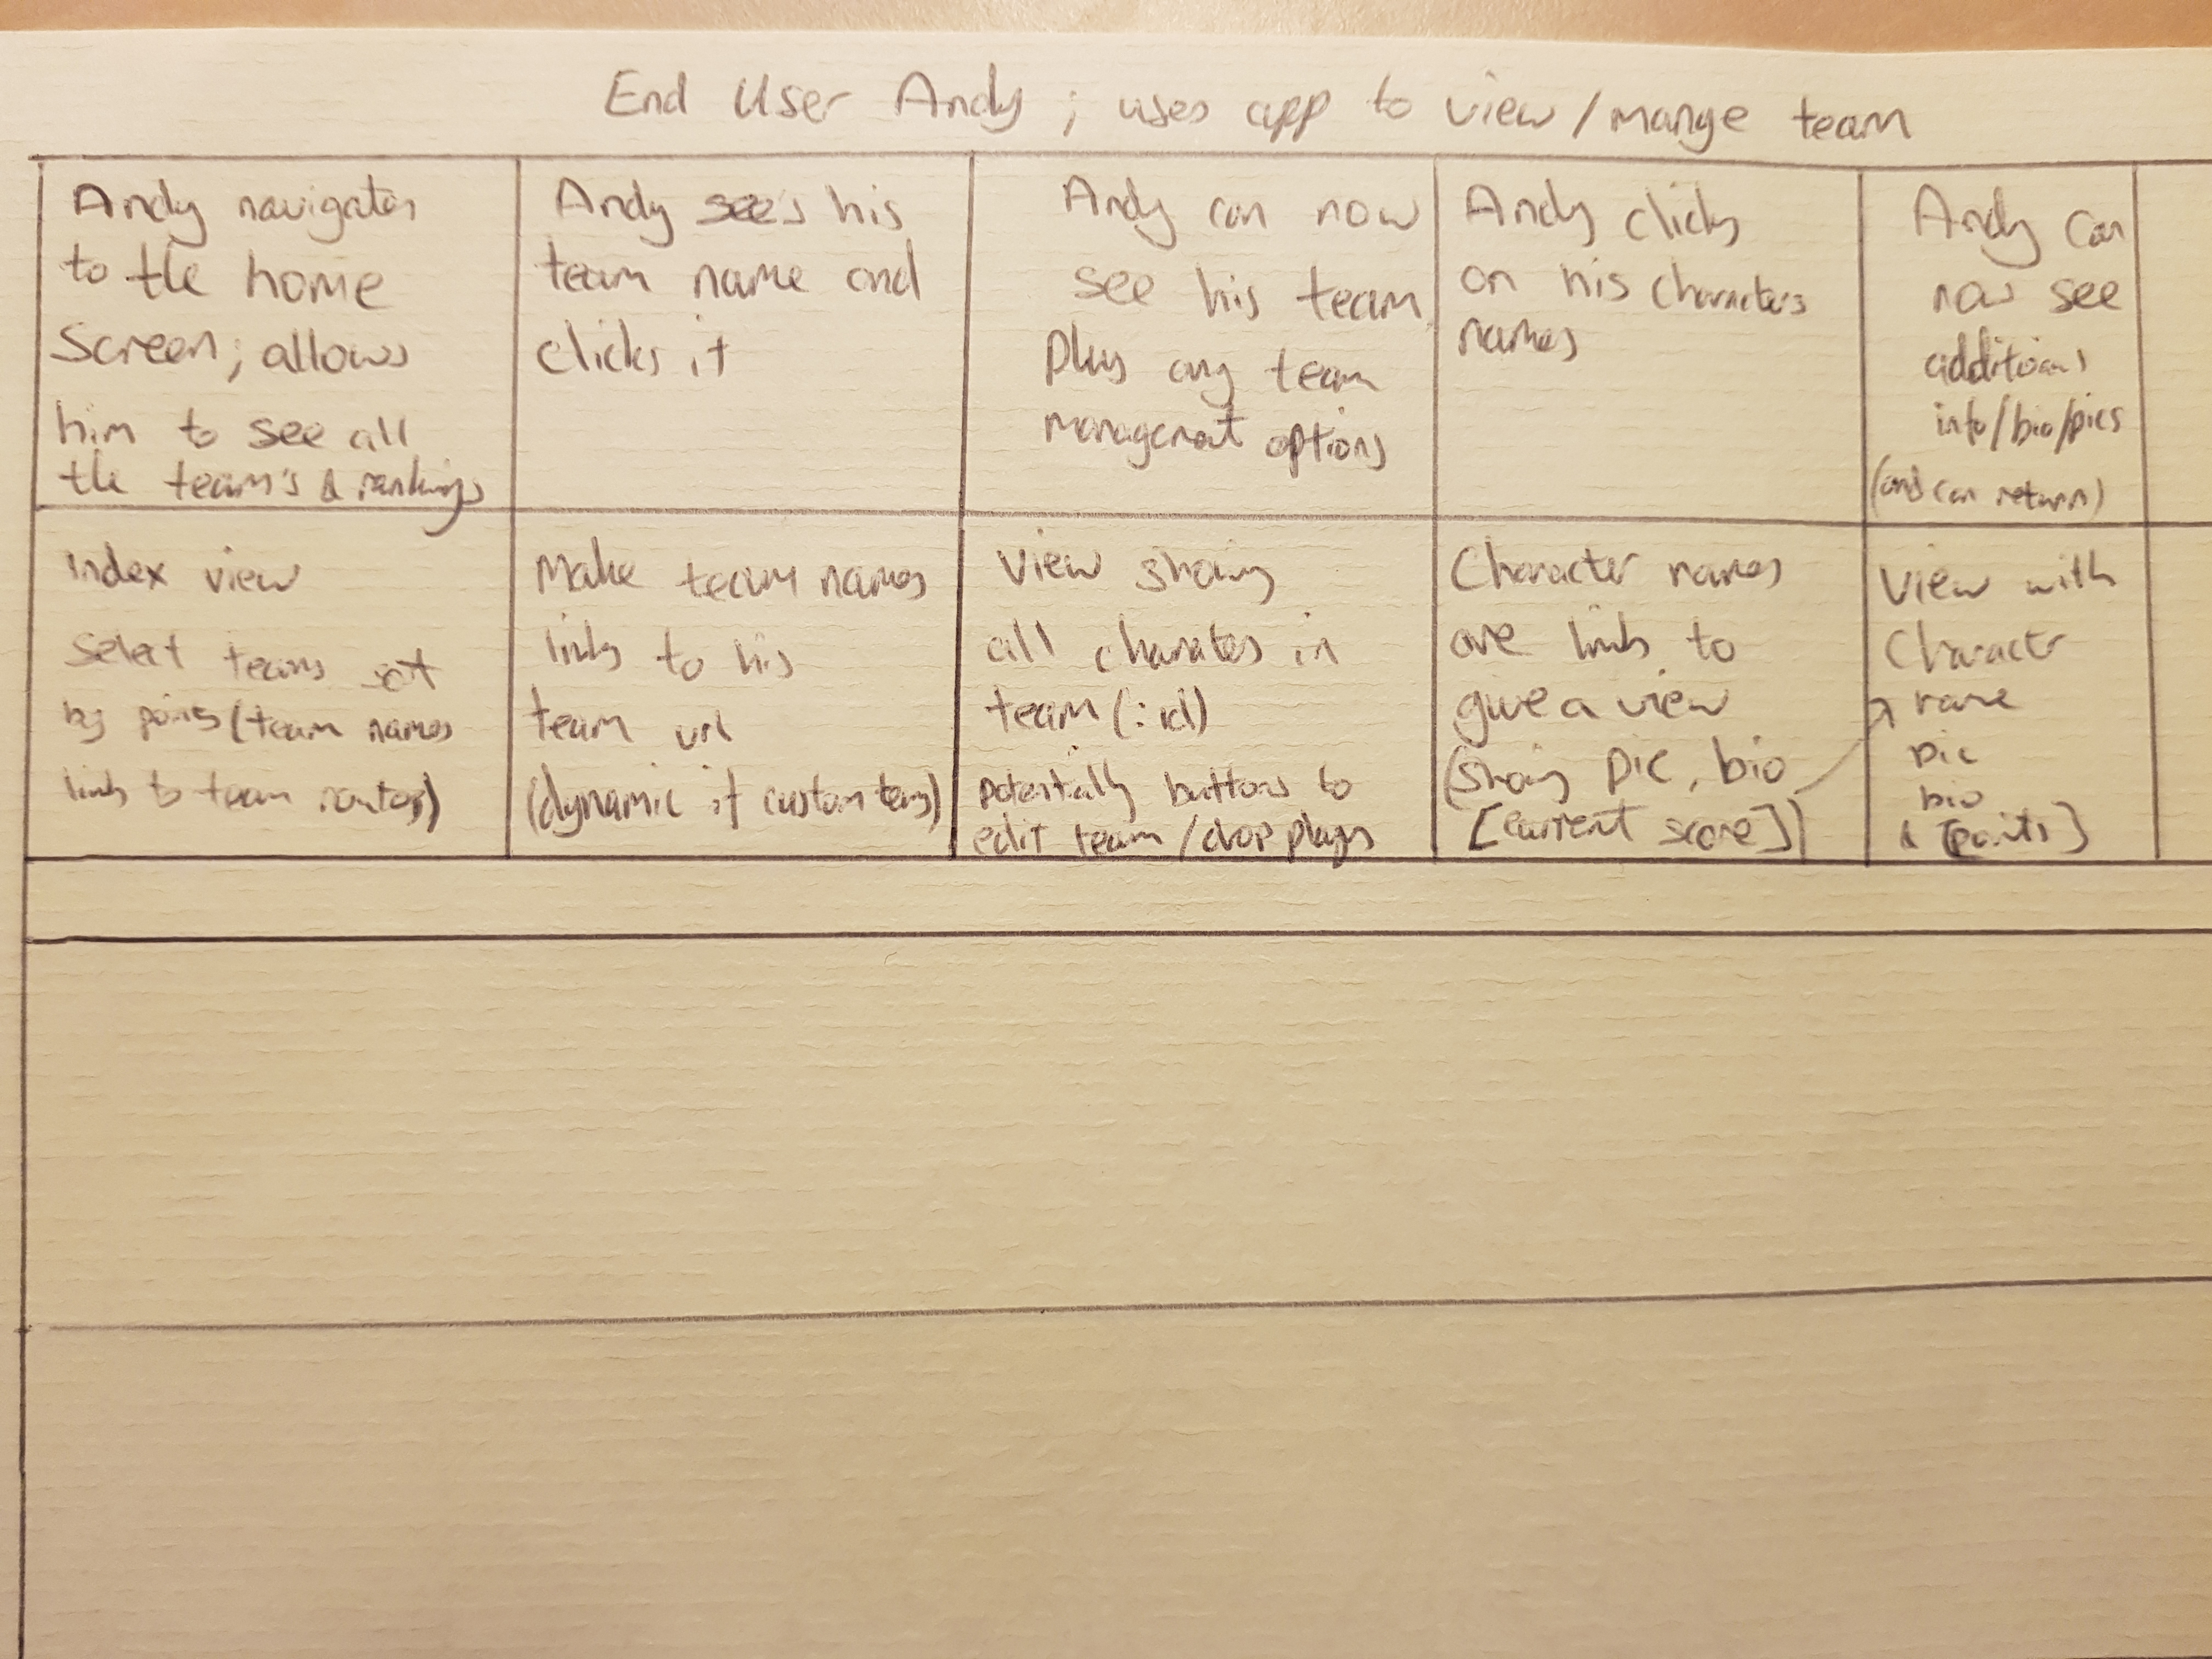 End User Andy ; uses app to view/mange team
Andy navigates
to the home
Screen; allows
him to see all
the team's & rankings
Andy see's his
team name and
clicks it
Andy can now
see his team,
plus any team
management options
Andy clicks
on his characters
names
Andy can
now see
additional
info/bio/pics
(and can return)
Index view
Select teams sort
by points (team names
links to team routes)
Make team names
links to his
team url
(dynamic if custom teams)
View showing
all characters in
team (:id)
potentially buttons to
edit team/drop players
Character names
are links to
give a view
(showing pic, bio
[current score])
View with
Character
name
pic
bio
& (points)